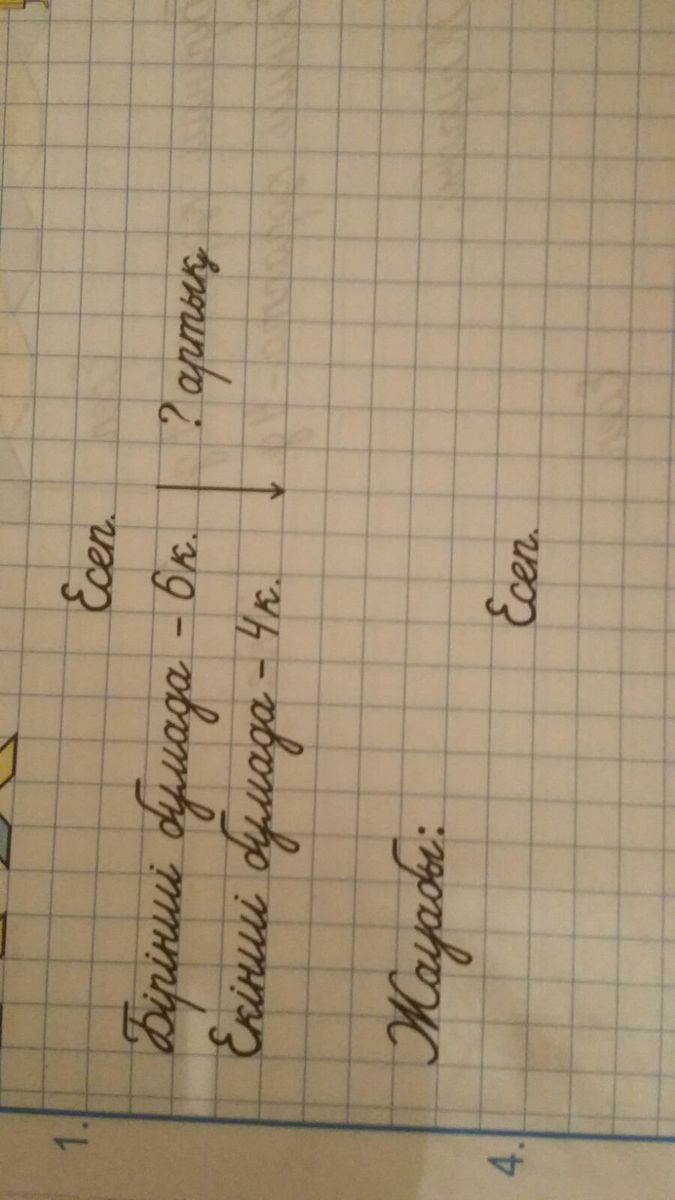 1.
Есеп.
Бірінші бумада - 6 к.
? артық
Екінші бумада - 4 к.
Жауабы:
4.
Есеп.